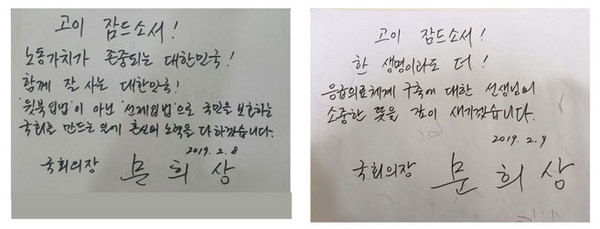 고이 잠드소서!
노동가치가 존중되는 대한민국!
함께 잘 사는 대한민국!
'뒷북입법'이 아닌 '선제입법'으로 국민을 보호하는
국회를 만드는 일에 혼신의 노력을 다 하겠습니다.
2019. 2. 8
국회의장 문 희 상
고이 잠드소서!
한 생명이라도 더!
응급의료체계 구축에 대한 선생님의
소중한 뜻을 깊이 새기겠습니다.
2019. 2. 9
국회의장 문 희 상